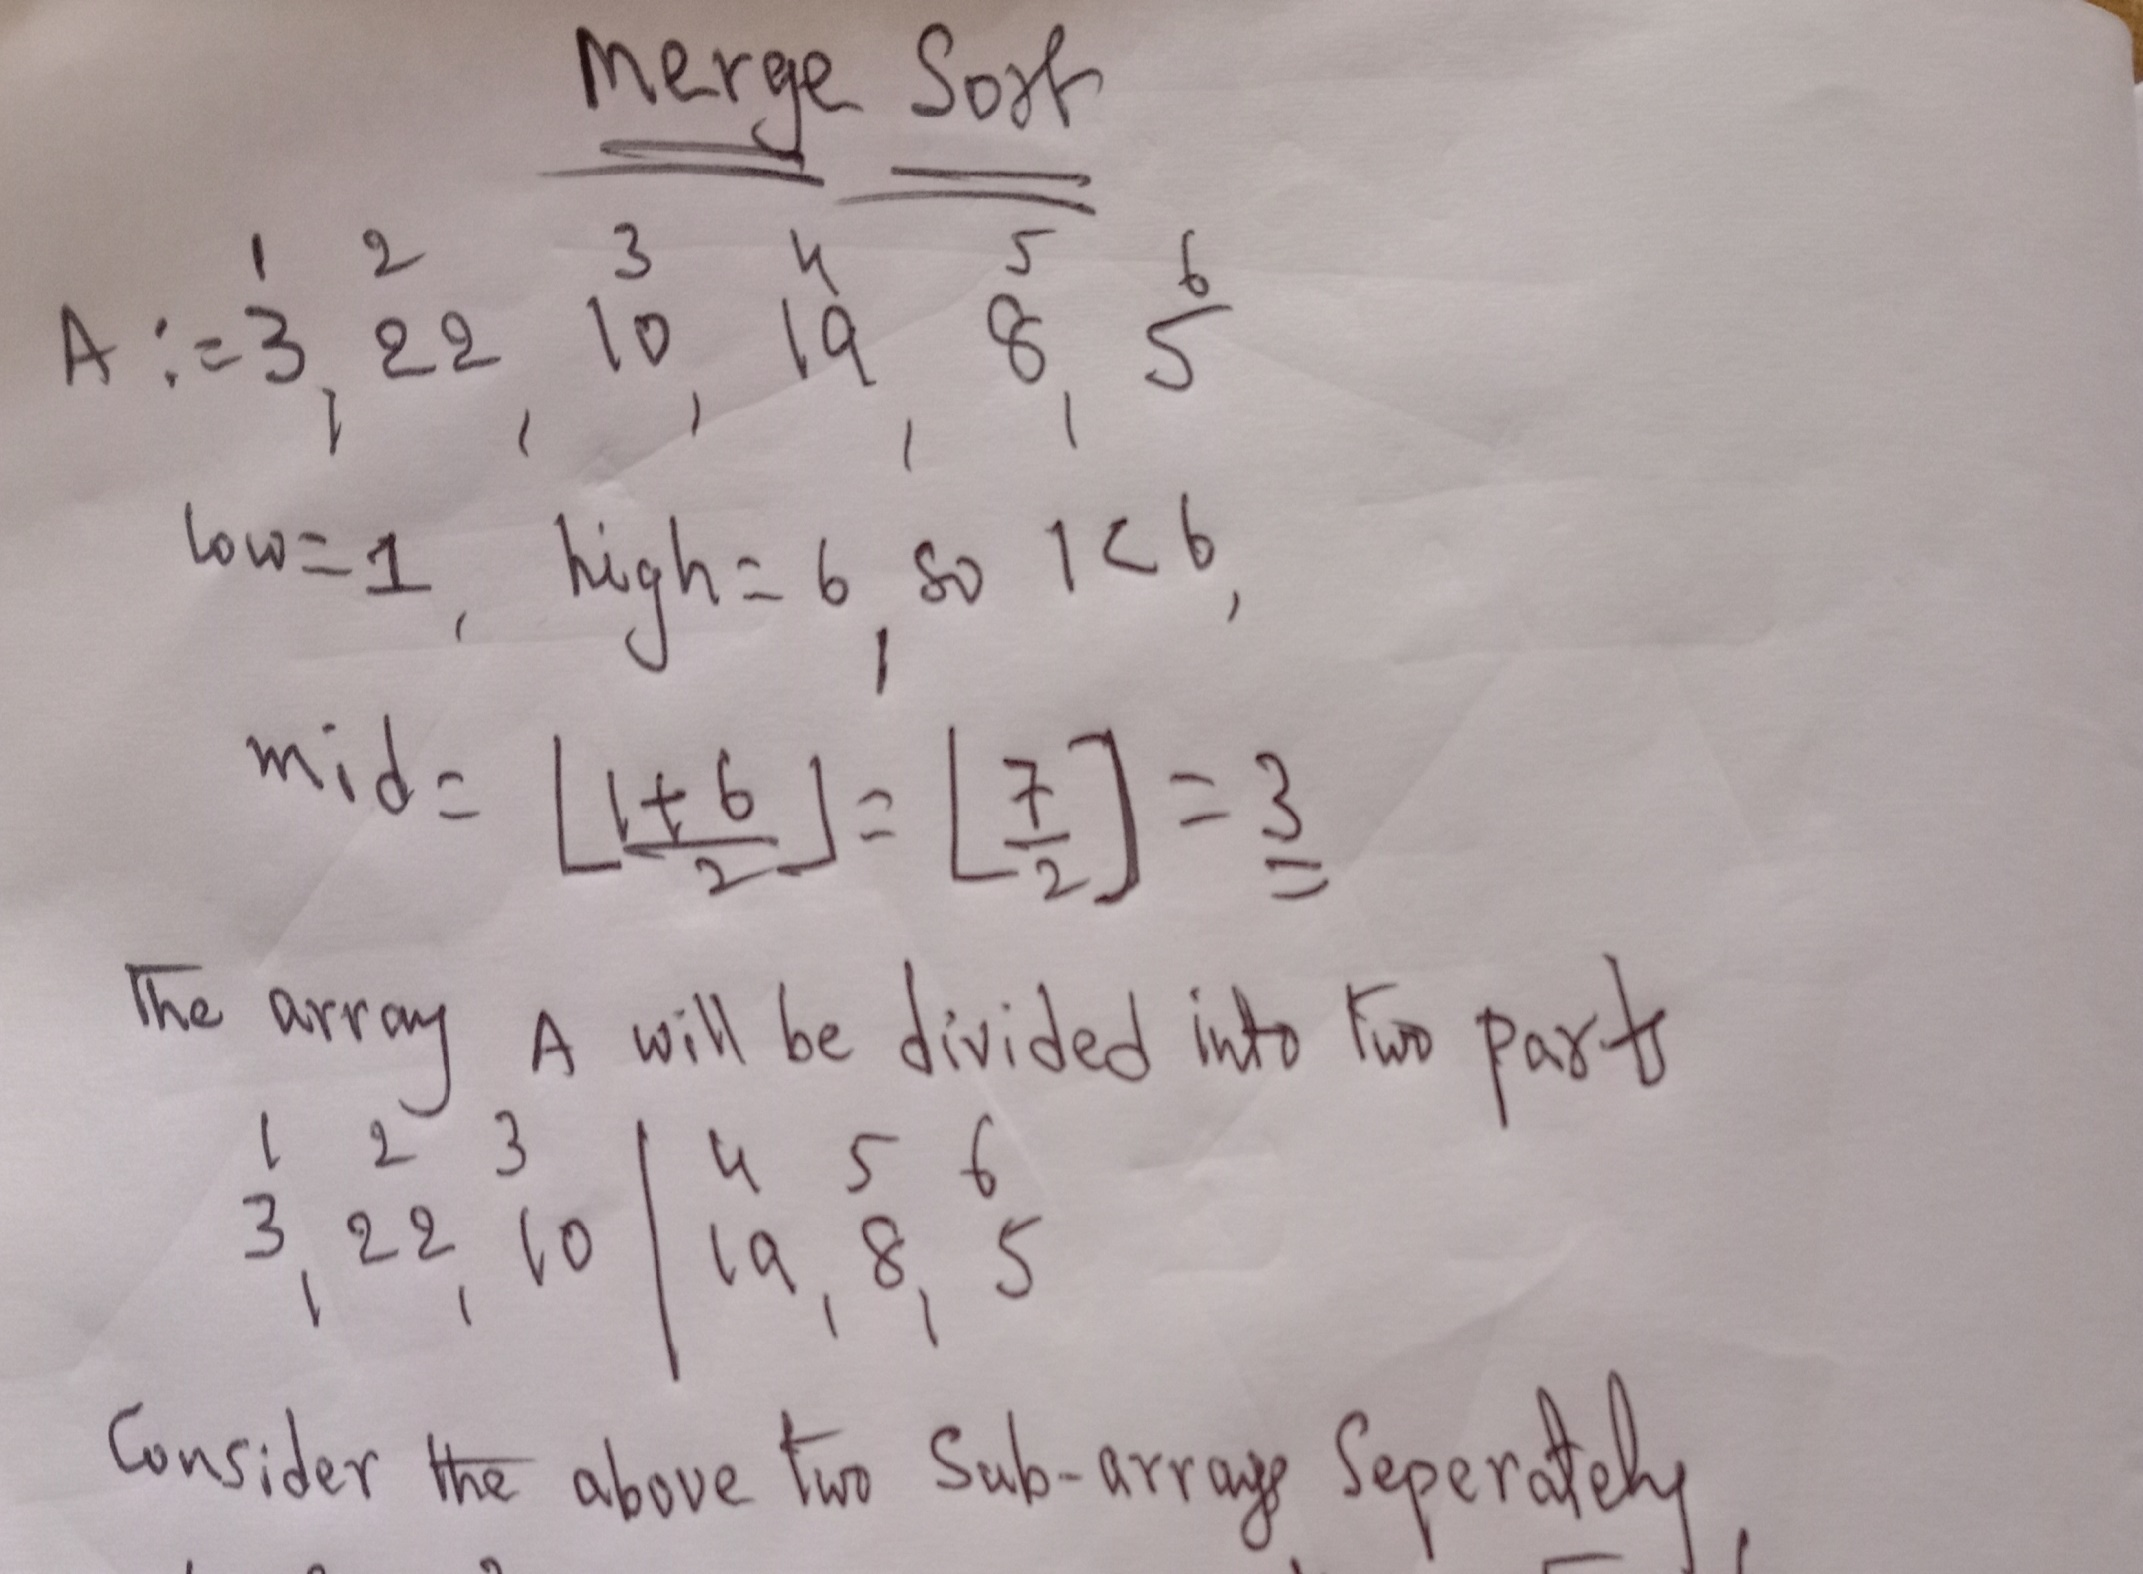 Merge Sort
1 2 3 4 5 6
A := 3, 22, 10, 19, 8, 5
low = 1, high = 6, so 1 < 6,
mid = ⌊(1+6)/2⌋ = ⌊7/2] = 3
The array A will be divided into two parts
1 2 3 | 4 5 6
3, 22, 10 | 19, 8, 5
Consider the above two Sub-arrays Seperately,